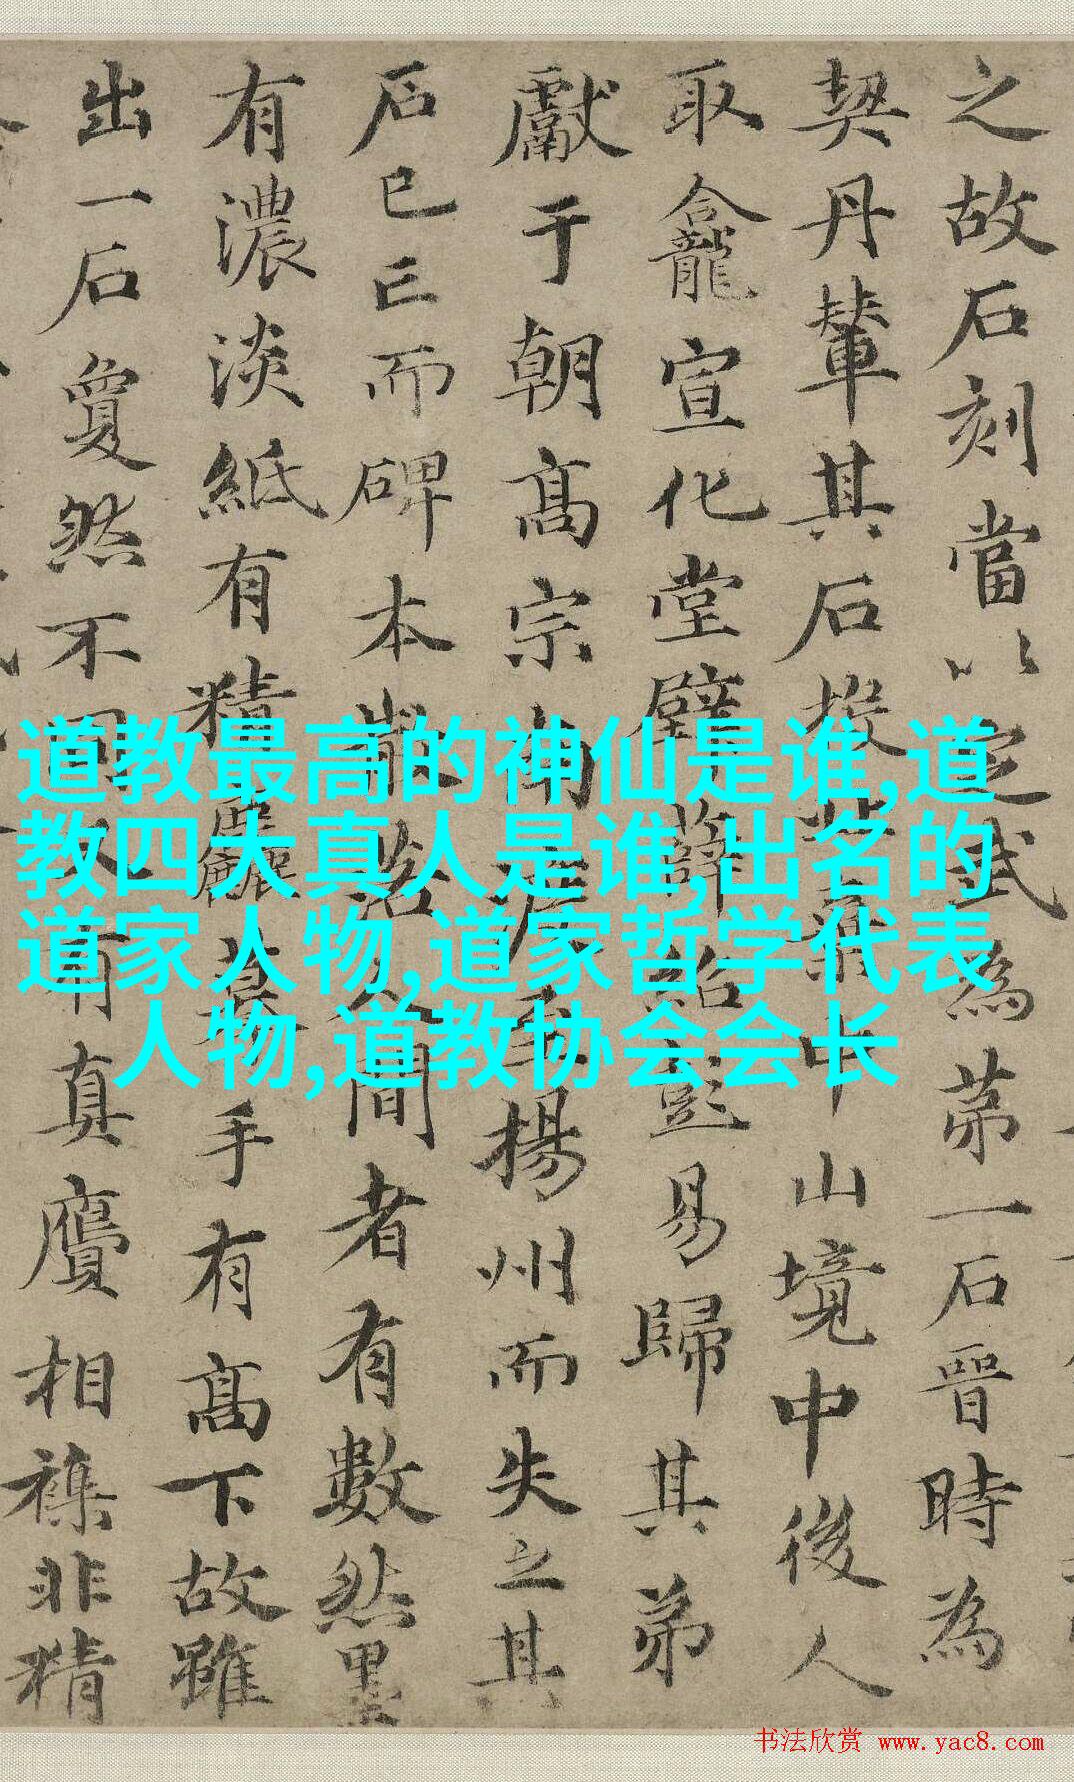 之故石刻當以定武為第一石晉時為
契丹輦其石投其中山境中後人
取龕宣化堂壁薛紹彭易歸其弟
獻于朝高宗南渡至揚州而失之其
石已亡而碑本散落人間者有數然墨
有濃淡紙有精麤摹手有高下故雖
出一石夐然不同又有真贗相襍非精
道教最高的神仙是谁,道
教四大真人是谁,出名的
道家人物,道家哲学代表
人物,道教协会会长
书法欣赏 www.yac8.com